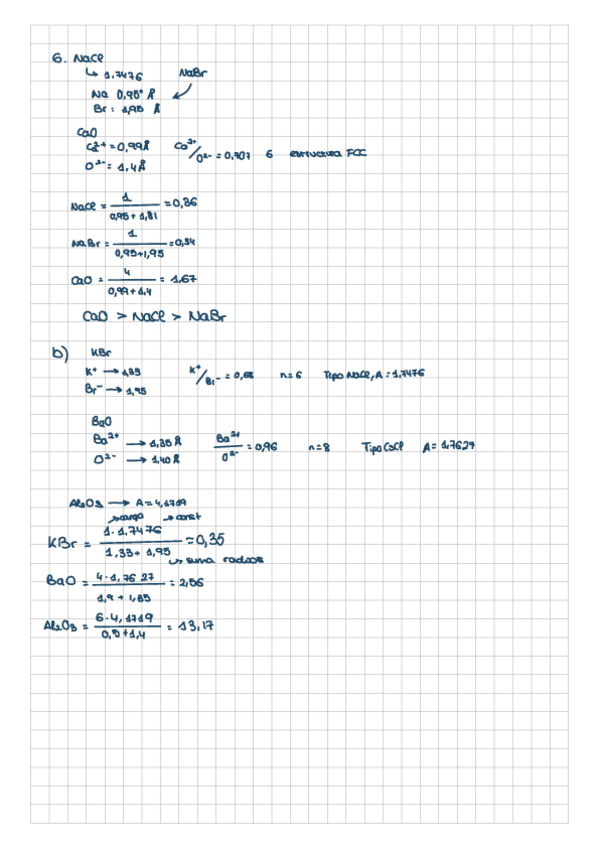 6. NaCl
↳ 1,7476 NaBr
Na 0,95° Å
Br: 1,95 Å
CaO
Ca2+ = 0,99Å Ca2+/O2- = 0,707 6 estructura FCC
O2- = 1,4Å
NaCl = 1/(0,95 + 1,81) = 0,36
NaBr = 1/(0,95+1,95) = 0,34
CaO = 4/(0,99 + 1,4) = 1,67
CaO > NaCl > NaBr
b) KBr
K+ → 1,33 K+/Br- = 0,68 n=6 Tipo NaCl, A = 1,7476
Br- → 1,95
BaO
Ba2+ → 1,35 Å Ba2+/O2- = 0,96 n=8 Tipo CsCl A = 1,7627
O2- → 1,40 Å
Al2O3 → A = 4,1719
→carga →const
KBr = 1·1,7476/(1,33+ 1,95) = 0,35
↳ suma radios
BaO = 4·1,7627/(1,4 + 1,35) = 2,56
Al2O3 = 6·4,1719/(0,5+1,4) = 13,17